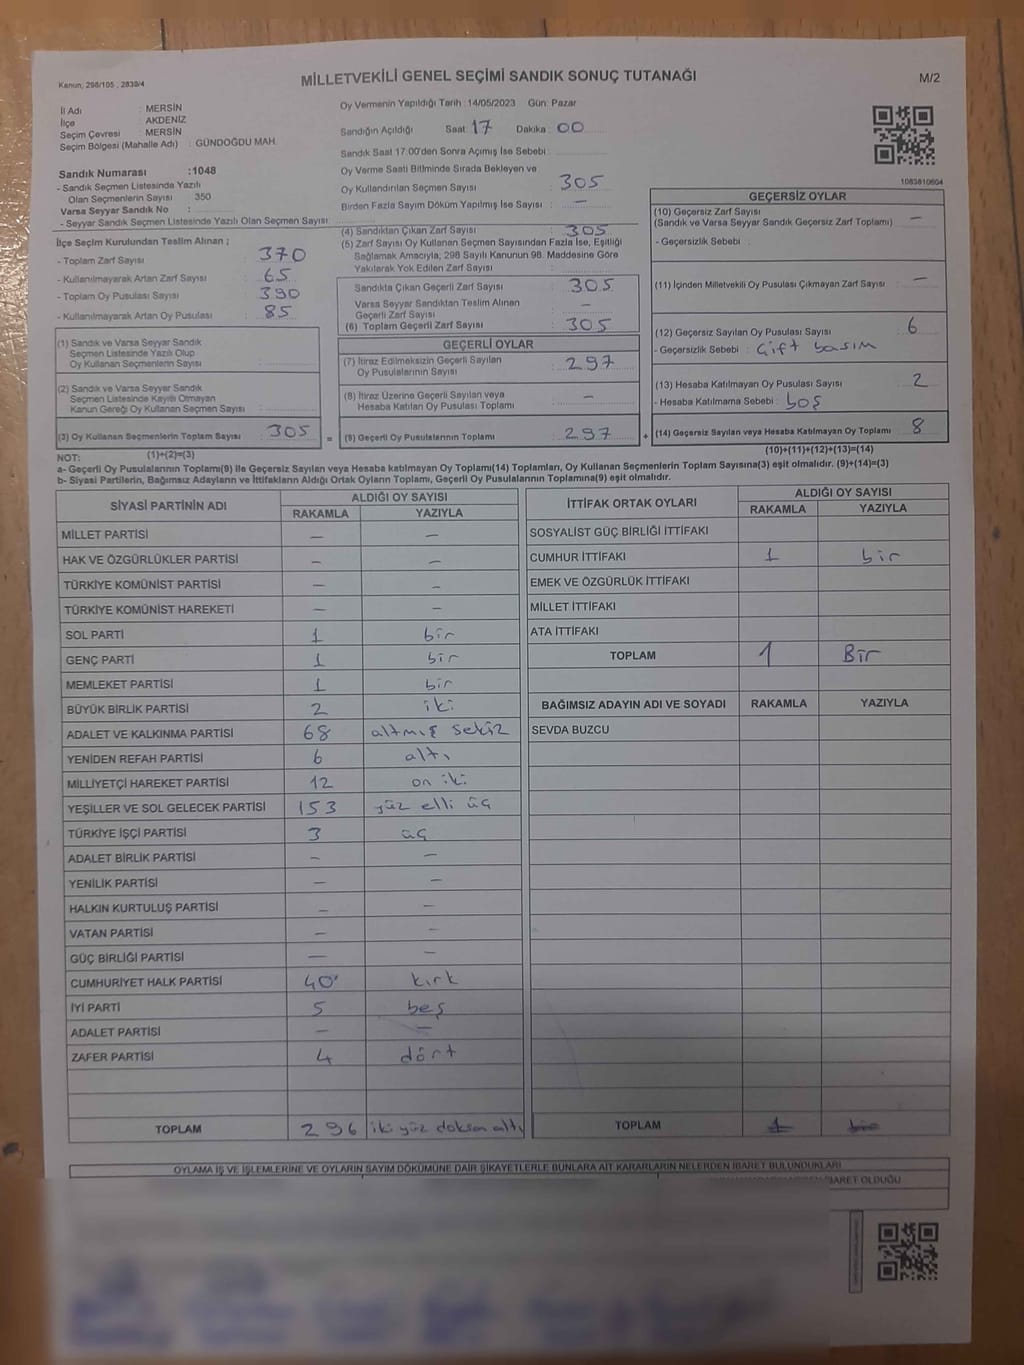 Kanun, 298/105 , 2839/4
MİLLETVEKİLİ GENEL SEÇİMİ SANDIK SONUÇ TUTANAĞI
M/2
İl Adı : MERSİN
İlçe : AKDENİZ
Seçim Çevresi : MERSİN
Seçim Bölgesi (Mahalle Adı) : GÜNDOĞDU MAH.
Sandık Numarası :1048
- Sandık Seçmen Listesinde Yazılı
Olan Seçmenlerin Sayısı : 350
Varsa Seyyar Sandık No :
- Seyyar Sandık Seçmen Listesinde Yazılı Olan Seçmen Sayısı :
Oy Vermenin Yapıldığı Tarih : 14/05/2023 Gün: Pazar
Sandığın Açıldığı Saat: 17 Dakika : 00
Sandık Saat 17:00'den Sonra Açımış İse Sebebi :
Oy Verme Saati Bitiminde Sırada Bekleyen ve
Oy Kullandırılan Seçmen Sayısı : 305
Birden Fazla Sayım Döküm Yapılmış İse Sayısı : —
1083810604
İlçe Seçim Kurulundan Teslim Alınan ;
- Toplam Zarf Sayısı : 370
- Kullanılmayarak Artan Zarf Sayısı : 65
- Toplam Oy Pusulası Sayısı : 390
- Kullanılmayarak Artan Oy Pusulası : 85
(1) Sandık ve Varsa Seyyar Sandık
Seçmen Listesinde Yazılı Olup
Oy Kullanan Seçmenlerin Sayısı :
(2) Sandık ve Varsa Seyyar Sandık
Seçmen Listesinde Kayıtlı Olmayan
Kanun Gereği Oy Kullanan Seçmen Sayısı :
(3) Oy Kullanan Seçmenlerin Toplam Sayısı : 305
(1)+(2)=(3)
(4) Sandıktan Çıkan Zarf Sayısı : 305
(5) Zarf Sayısı Oy Kullanan Seçmen Sayısından Fazla İse, Eşitliği
Sağlamak Amacıyla, 298 Sayılı Kanunun 98. Maddesine Göre
Yakılarak Yok Edilen Zarf Sayısı :
Sandıkta Çıkan Geçerli Zarf Sayısı : 305
Varsa Seyyar Sandıktan Teslim Alınan
Geçerli Zarf Sayısı : —
(6) Toplam Geçerli Zarf Sayısı : 305
GEÇERLİ OYLAR
(7) İtiraz Edilmeksizin Geçerli Sayılan
Oy Pusulalarının Sayısı : 297
(8) İtiraz Üzerine Geçerli Sayılan veya
Hesaba Katılan Oy Pusulası Toplamı : —
=
(9) Geçerli Oy Pusulalarının Toplamı : 297
+
GEÇERSİZ OYLAR
(10) Geçersiz Zarf Sayısı
(Sandık ve Varsa Seyyar Sandık Geçersiz Zarf Toplamı) : —
- Geçersizlik Sebebi :
(11) İçinden Milletvekili Oy Pusulası Çıkmayan Zarf Sayısı : —
(12) Geçersiz Sayılan Oy Pusulası Sayısı : 6
- Geçersizlik Sebebi : Çift basım
(13) Hesaba Katılmayan Oy Pusulası Sayısı : 2
- Hesaba Katılmama Sebebi : boş
(14) Geçersiz Sayılan veya Hesaba Katılmayan Oy Toplamı : 8
(10)+(11)+(12)+(13)=(14)
NOT:
a- Geçerli Oy Pusulalarının Toplamı(9) ile Geçersiz Sayılan veya Hesaba katılmayan Oy Toplamı(14) Toplamları, Oy Kullanan Seçmenlerin Toplam Sayısına(3) eşit olmalıdır. (9)+(14)=(3)
b- Siyasi Partilerin, Bağımsız Adayların ve İttifakların Aldığı Ortak Oyların Toplamı, Geçerli Oy Pusulalarının Toplamına(9) eşit olmalıdır.
SİYASİ PARTİNİN ADI ALDIĞI OY SAYISI
RAKAMLA YAZIYLA
MİLLET PARTİSİ — —
HAK VE ÖZGÜRLÜKLER PARTİSİ — —
TÜRKİYE KOMÜNİST PARTİSİ — —
TÜRKİYE KOMÜNİST HAREKETİ — —
SOL PARTİ 1 bir
GENÇ PARTİ 1 bir
MEMLEKET PARTİSİ 1 bir
BÜYÜK BİRLİK PARTİSİ 2 iki
ADALET VE KALKINMA PARTİSİ 68 altmış sekiz
YENİDEN REFAH PARTİSİ 6 altı
MİLLİYETÇİ HAREKET PARTİSİ 12 on iki
YEŞİLLER VE SOL GELECEK PARTİSİ 153 yüz elli üç
TÜRKİYE İŞÇİ PARTİSİ 3 üç
ADALET BİRLİK PARTİSİ — —
YENİLİK PARTİSİ — —
HALKIN KURTULUŞ PARTİSİ — —
VATAN PARTİSİ — —
GÜÇ BİRLİĞİ PARTİSİ — —
CUMHURİYET HALK PARTİSİ 40 kırk
İYİ PARTİ 5 beş
ADALET PARTİSİ — —
ZAFER PARTİSİ 4 dört
TOPLAM 296 iki yüz doksan altı
İTTİFAK ORTAK OYLARI ALDIĞI OY SAYISI
RAKAMLA YAZIYLA
SOSYALİST GÜÇ BİRLİĞİ İTTİFAKI
CUMHUR İTTİFAKI 1 bir
EMEK VE ÖZGÜRLÜK İTTİFAKI
MİLLET İTTİFAKI
ATA İTTİFAKI
TOPLAM 1 Bir
BAĞIMSIZ ADAYIN ADI VE SOYADI RAKAMLA YAZIYLA
SEVDA BUZCU
TOPLAM 1 bir
OYLAMA İŞ VE İŞLEMLERİNE VE OYLARIN SAYIM DÖKÜMÜNE DAİR ŞİKAYETLERLE BUNLARA AİT KARARLARIN NELERDEN İBARET BULUNDUKLARI
İBARET OLDUĞU